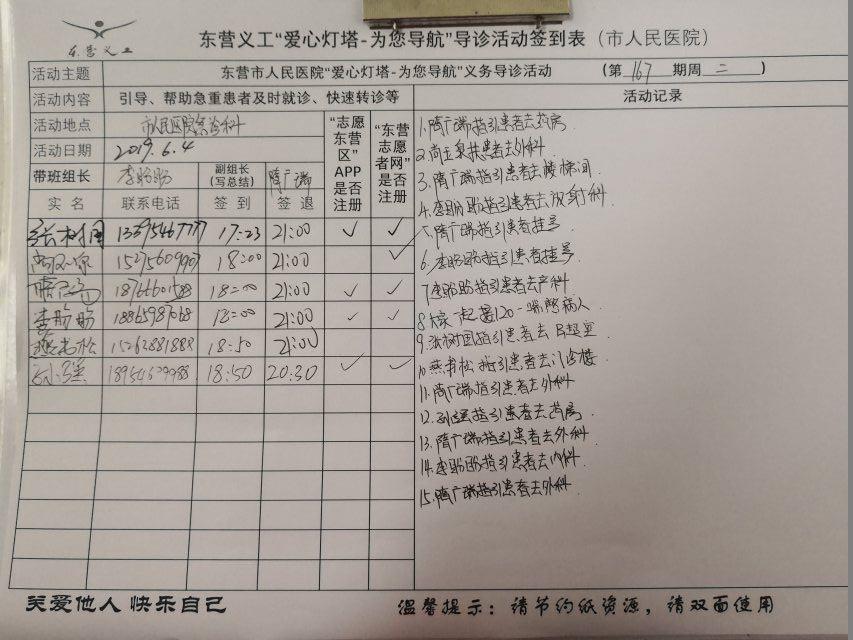 东营义工
东营义工“爱心灯塔-为您导航”导诊活动签到表（市人民医院）
活动主题 东营市人民医院“爱心灯塔-为您导航”义务导诊活动 （第 167 期周 二 ）
活动内容 引导、帮助急重患者及时就诊、快速转诊等 活动记录
活动地点 市人民医院急诊科
活动日期 2019.6.4
带班组长 李盼盼 副组长（写总结） 隋广瑞
“志愿东营区”APP是否注册
“东营志愿者网”是否注册
实名 联系电话 签到 签退
张树国 17:23 21:00 ✓ ✓
18:00 21:00 ✓
18:00 21:00 ✓ ✓
李盼盼 18865987068 18:00 21:00 ✓ ✓
燕书松 15262881888 18:50 21:00
孙强 18:50 20:30 ✓ ✓
1.隋广瑞指引患者去药房
2.扶患者去外科.
3.隋广瑞指引患者去楼梯间
4.李盼盼指引患者去放射科
5.隋广瑞指引患者挂号
6.李盼盼指引患者挂号
7.李盼盼指引患者去产科
8.大家一起 120一 病人
9.张树国指引患者去
10.燕书松指引患者去门诊楼
11.隋广瑞指引患者去外科
12.孙强指引患者去药房
13.隋广瑞指引患者去外科
14.李盼盼指引患者去内科
15.隋广瑞指引患者去外科
关爱他人 快乐自己
温馨提示：请节约纸资源，请双面使用